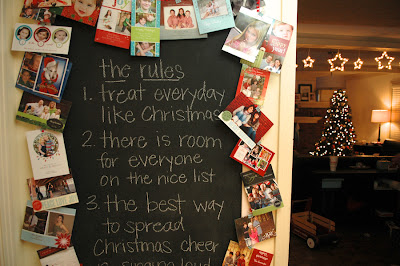 the rules
1. treat everyday
like Christmas
2. there is room
for everyone
on the nice list
3. the best way
to spread
Christmas cheer
is singing loud